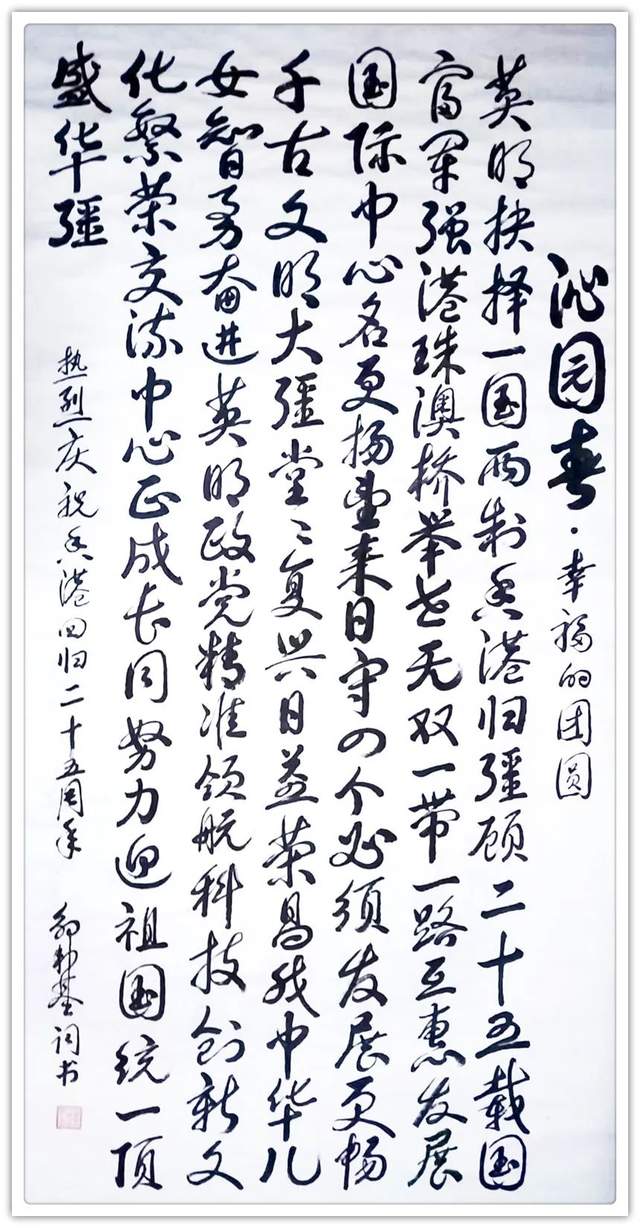 沁园春·幸福的团圆
英明抉择一国两制香港归疆顾二十五载国
富军强港珠澳桥举世无双一带一路互惠发展
国际中心名更扬望来日守四个必须发展更畅
千古文明大疆堂々复兴日益荣昌我中华儿
女智勇奋进英明政党精准领航科技创新文
化繁荣交流中心正成长同努力迎祖国统一顶
盛华疆
热烈庆祝香港回归二十五周年 词书